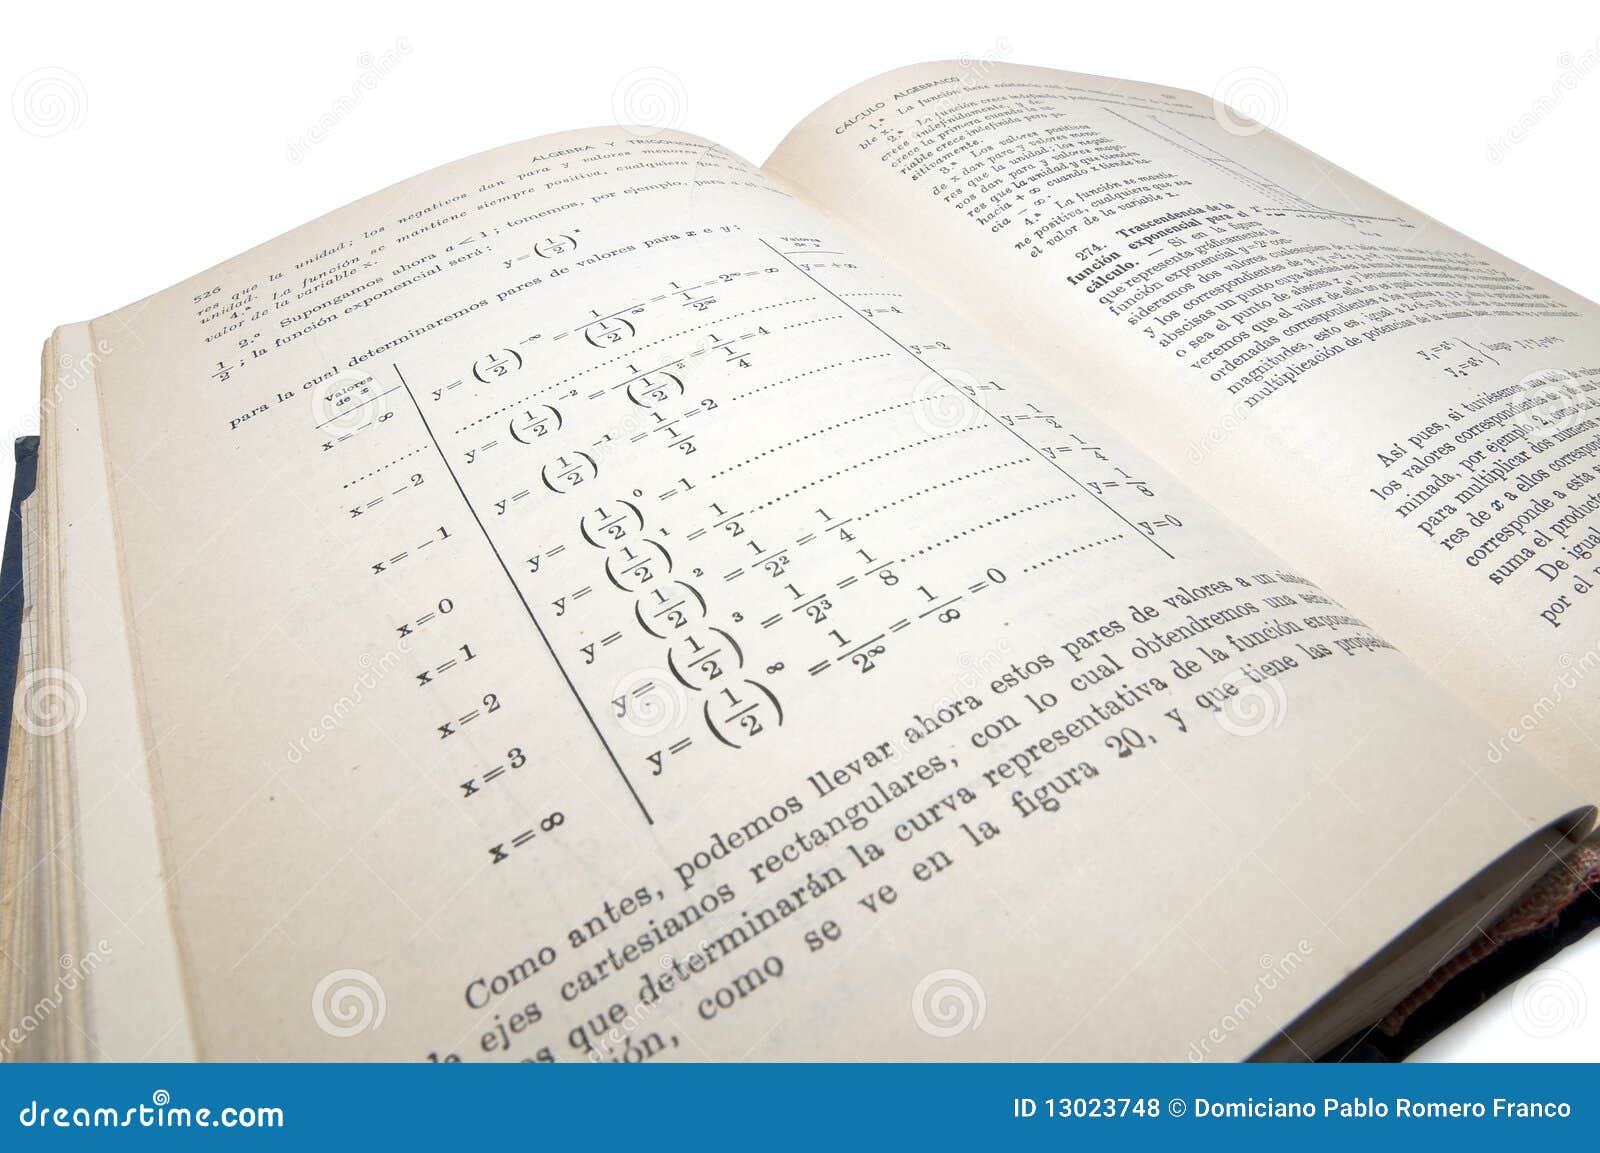 526
ÁLGEBRA Y
res que la unidad; los negativos dan para y valores menores
unidad. 4.ª La función se mantiene siempre positiva, cualquiera que
valor de la variable x.
2.º Supongamos ahora a < 1; tomemos, por ejemplo, para a el
1/2; la función exponencial será:
y = (1/2)ˣ
para la cual determinaremos pares de valores para x e y:
Valores de x
Valores de y
x = − ∞ y = (1/2)^−∞ = 1/(1/2)^∞ = 1/(1/2^∞) = 2^∞ = ∞ y = + ∞
x = −2 y = (1/2)^−2 = 1/(1/2)^2 = 1/(1/4) = 4 y = 4
x = −1 y = (1/2)^−1 = 1/(1/2) = 2 y = 2
x = 0 y = (1/2)^0 = 1 y = 1
x = 1 y = (1/2)^1 = 1/2 y = 1/2
x = 2 y = (1/2)^2 = 1/2^2 = 1/4 y = 1/4
x = 3 y = (1/2)^3 = 1/2^3 = 1/8 y = 1/8
x = ∞ y = (1/2)^∞ = 1/2^∞ = 1/∞ = 0 y = 0
Como antes, podemos llevar ahora estos pares de valores a un
ejes cartesianos rectangulares, con lo cual obtendremos una
que determinarán la curva representativa de la función
como se ve en la figura 20, y que tiene las
CÁLCULO ALGEBRAICO
1.ª La función tiene
ble x. 2.ª La función crece indefinida
crece indefinidamente, y de-
crece la primera cuando la va-
riable crece indefinida pero po-
sitivamente.
3.ª Los valores positivos
de x dan para y valores meno-
res que la unidad; los negati-
vos dan para y valores mayo-
res que la unidad y que tienden
hacia + ∞ cuando x tiende ha-
cia − ∞.
4.ª La función se mantie-
ne positiva, cualquiera que sea
el valor de la variable x.
274. Trascendencia de la
función exponencial para el
cálculo. — Si en la figura
que representa gráficamente la
función exponencial y = 2ˣ con-
sideramos dos valores cualesquiera de x,
y los correspondientes de y,
abscisas un punto cuya abscisa sea
o sea el punto de abscisa
veremos que el valor de
ordenadas correspondientes a los
magnitudes, esto es, igual a
multiplicación de potencias de la misma base,
Así pues, si tuviésemos una tabla de
los valores correspondientes de la
minada, por ejemplo, 2,
para multiplicar dos números
res de x a ellos
corresponde a esta
suma el producto
De igual
por el
dreamstime.com
ID 13023748 © Domiciano Pablo Romero Franco